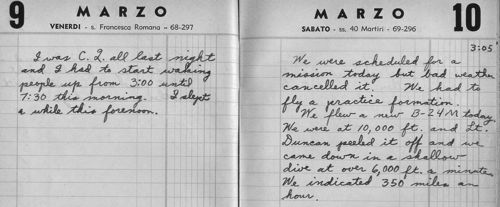 9 MARZO
VENERDI - s. Francesca Romana - 68-297
I was C.Q. all last night
and I had to start waking
people up from 3:00 until
7:30 this morning. I slept
a while this forenoon.
MARZO 10
SABATO - ss. 40 Martiri - 69-296
3:05
We were scheduled for a
mission today but bad weather
cancelled it. We had to
fly a practice formation.
We flew a new B-24M today.
We were at 10,000 ft. and Lt.
Duncan peeled it off and we
came down in a shallow
dive at over 6,000 ft. a minute.
We indicated 350 miles an
hour.